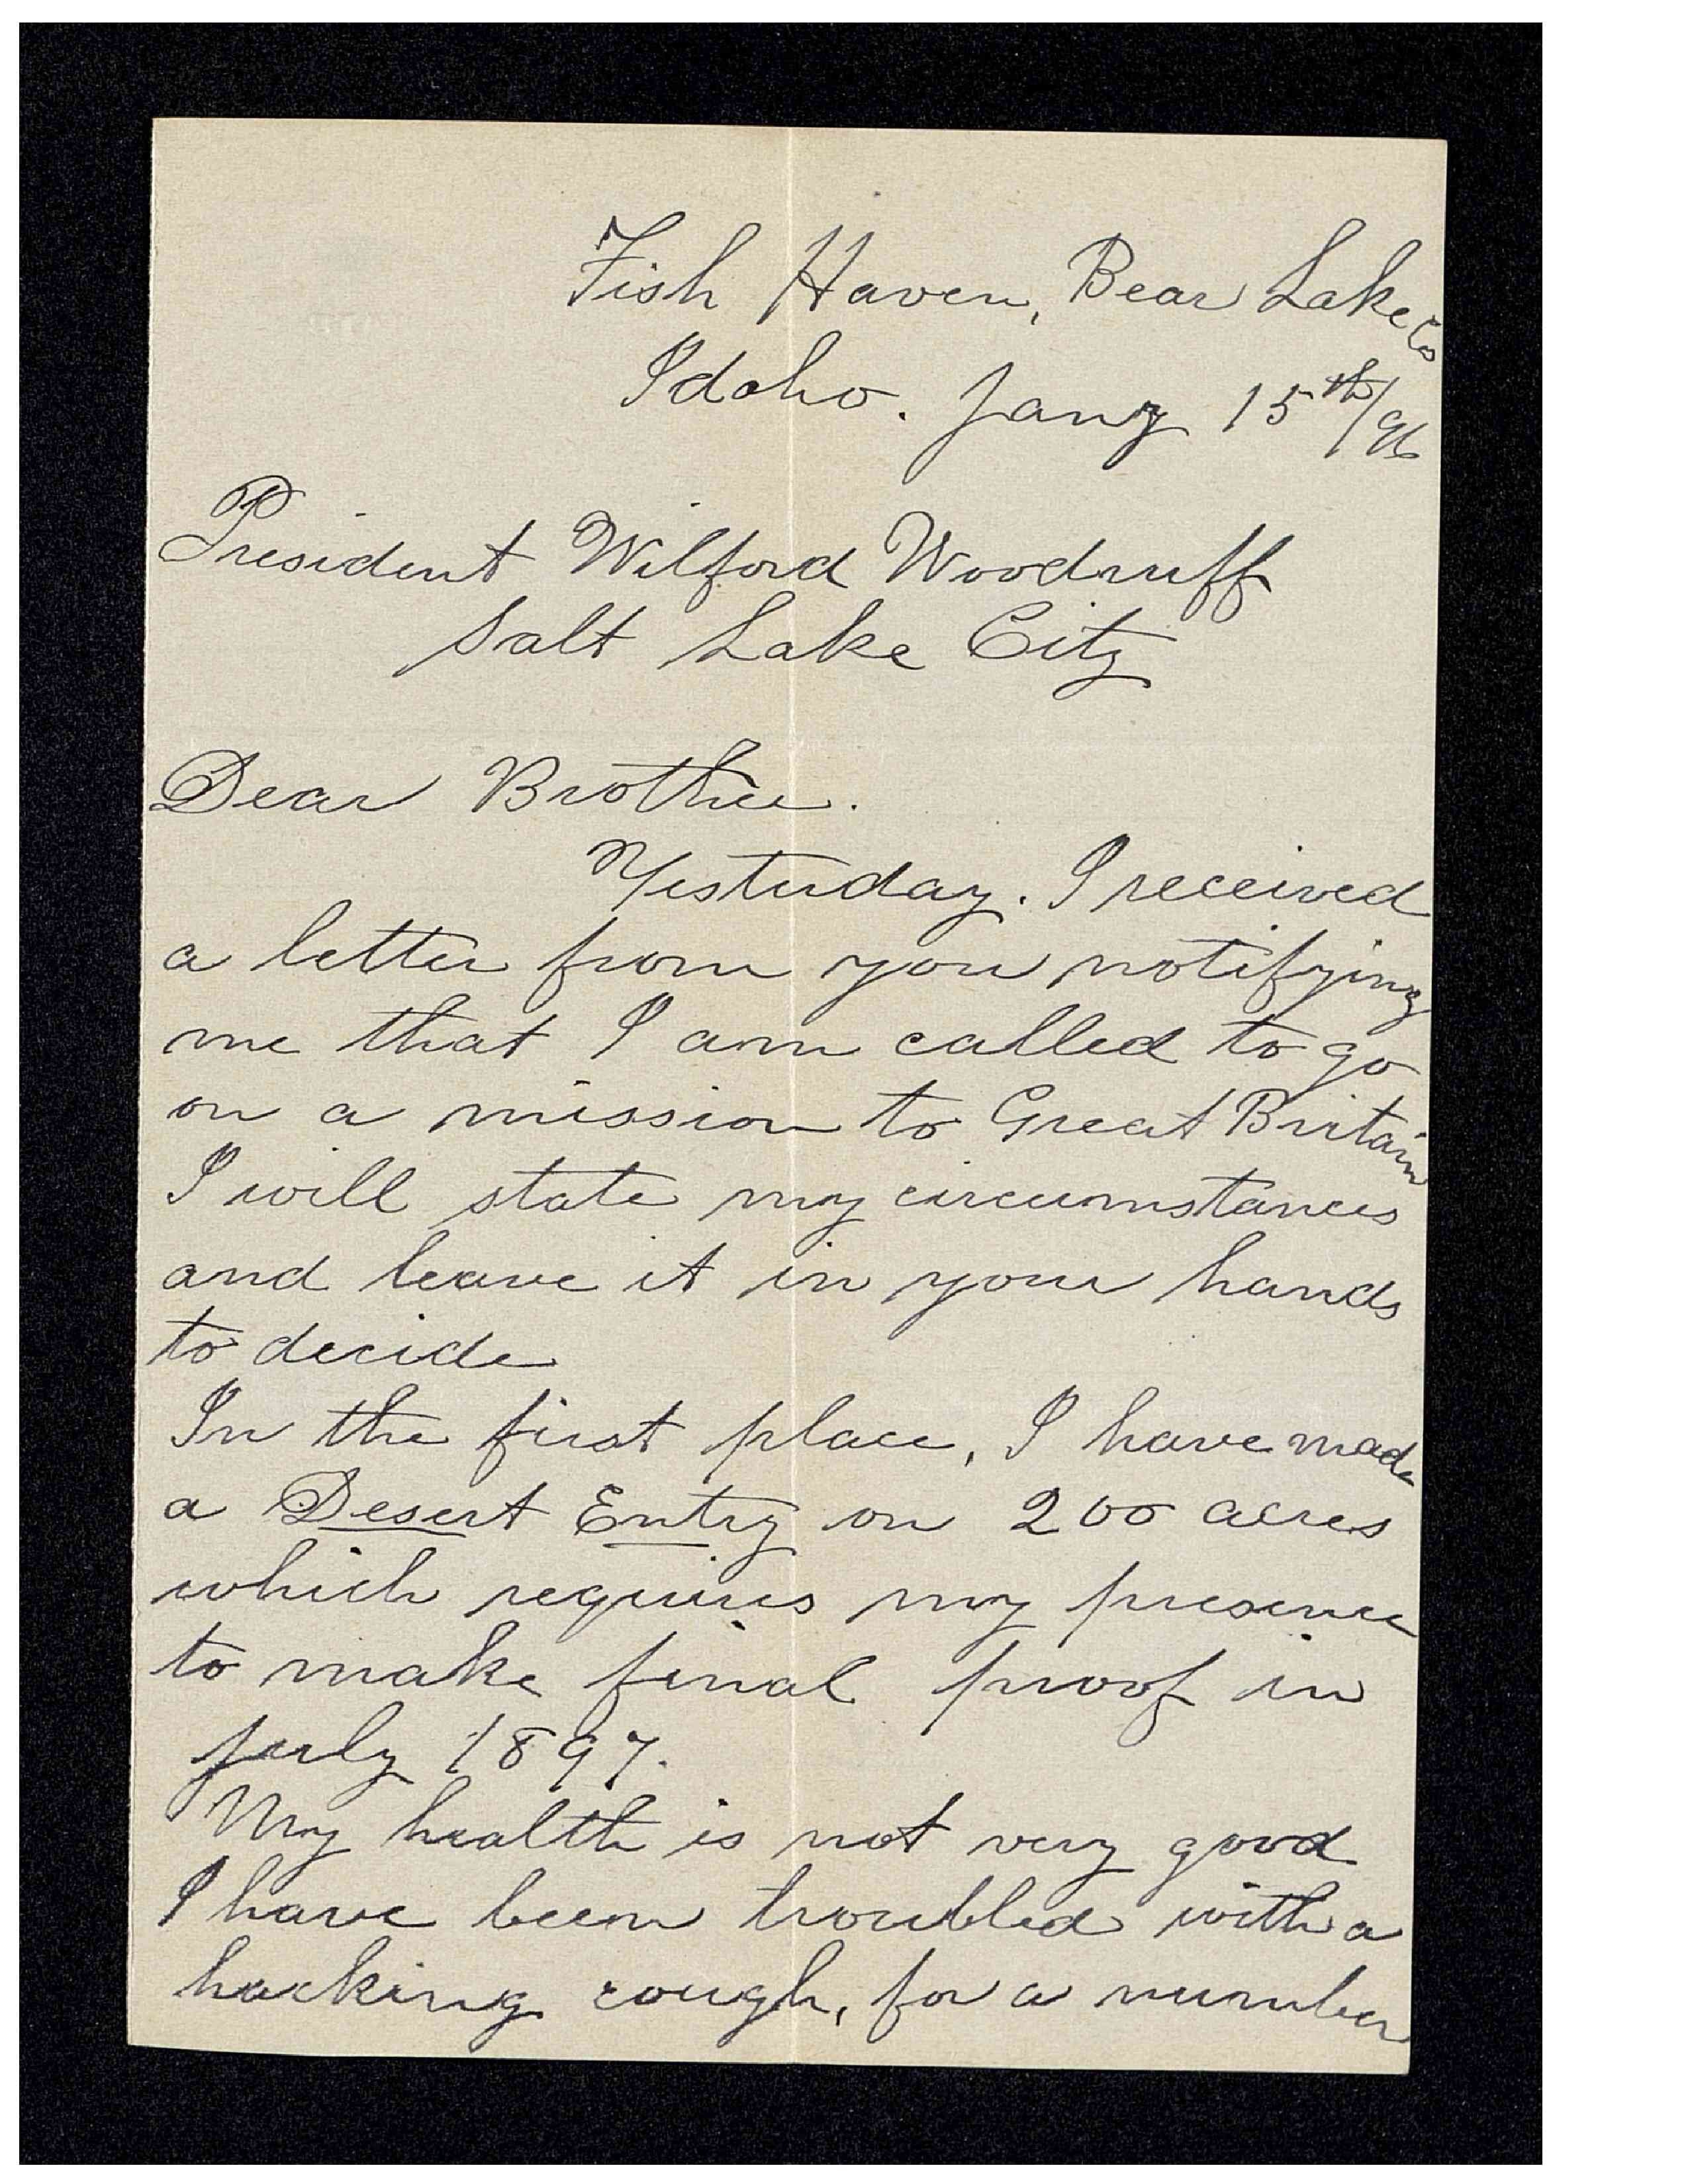 Fish Haven, Bear Lake Co
Idaho. Jany 15th/96
President Wilford Woodruff
Salt Lake City
Dear Brother.
Yesterday. I received
a letter from you notifying
me that I am called to go
on a mission to Great Britain
I will state my circumstances
and leave it in your hands
to decide
In the first place, I have made
a Desert Entry on 200 acres
which requires my presence
to make final proof in
July 1897.
My health is not very good
I have been troubled with a
hacking cough, for a number